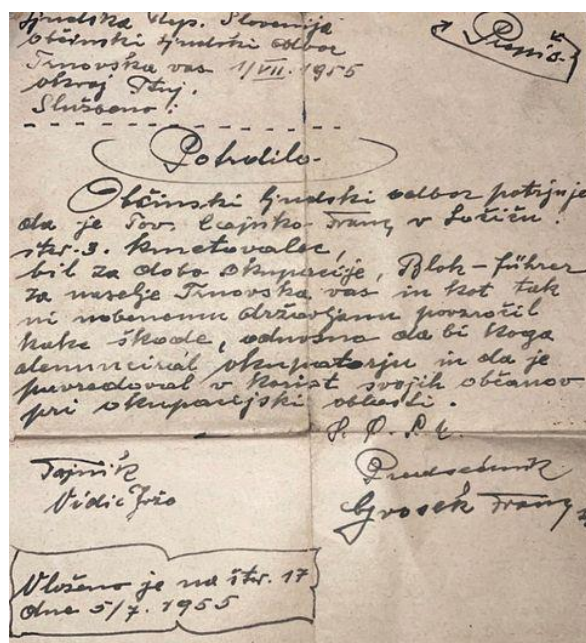 Ljudska Rep. Slovenija
občinski ljudski odbor
Trnovska vas 1/VII. 1955
okraj Ptuj.
Službeno!
Prepis.
Potrdilo.
Občinski ljudski odbor potrjuje
da je Tov. Franz v Ločiču.
štv. 3. kmetovalec,
bil za dobo okupacije, Blok-führer
za naselje Trnovska vas in kot tak
ni nobenemu državljanu povzročil
kake škode, odnosno da bi koga
denunciral okupatorju in da je
posredoval v korist svojih občanov
pri okupacijski oblasti.
Tajnik
Vidic Jožo
Predsednik
Franz
Vloženo je na štv. 17
dne 5/7. 1955